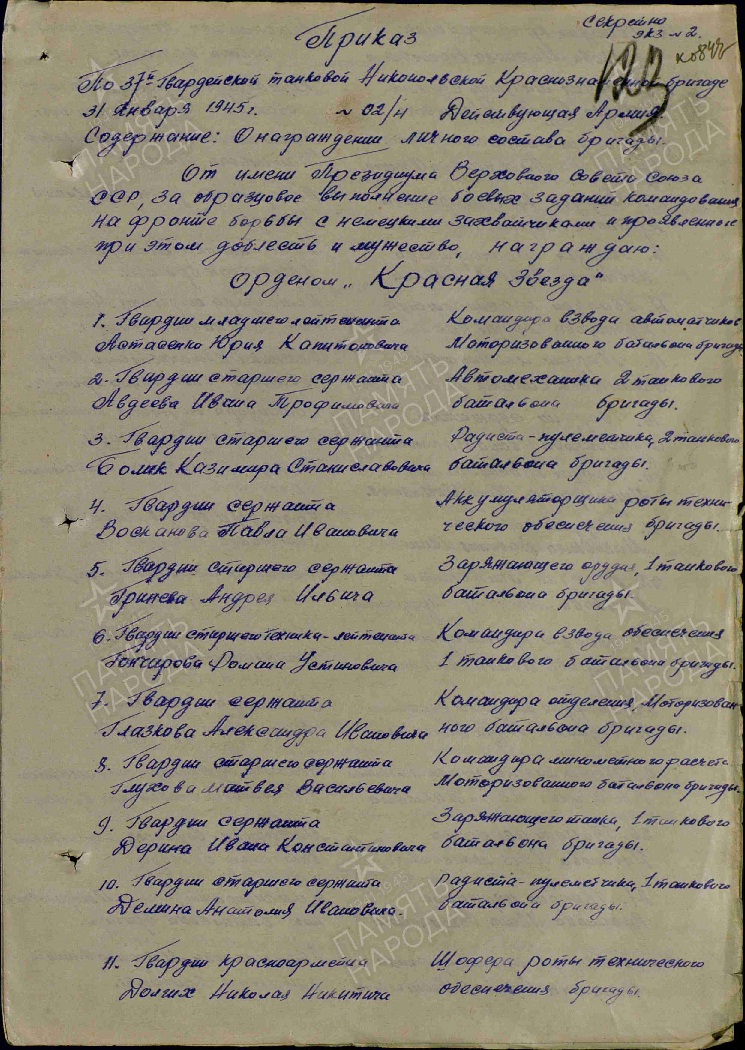 Секретно
экз №2.
Приказ
По 37й Гвардейской танковой Никопольской Краснознаменной бригаде
31 января 1945 г. №02/н Действующая Армия
Содержание: О награждении личного состава бригады.
От имени Президиума Верховного Совета Союза
ССР, за образцовое выполнение боевых заданий командования
на фронте борьбы с немецкими захватчиками и проявленные
при этом доблесть и мужество, награждаю:
орденом „Красная Звезда"
1. Гвардии младшего лейтенанта Командира взвода автоматчиков
Астасенко Юрия Капитоновича Моторизованного батальона бригады
2. Гвардии старшего сержанта Автомеханика 2 танкового
Авдеева Ивана Трофимовича батальона бригады.
3. Гвардии старшего сержанта Радиста-пулеметчика, 2 танкового
Болюк Казимира Станиславовича батальона бригады.
4. Гвардии сержанта Аккумуляторщика роты техни-
Восканова Павла Ивановича ческого обеспечения бригады.
5. Гвардии старшего сержанта Заряжающего орудия, 1 танкового
Гринева Андрея Ильича батальона бригады.
6. Гвардии старшего техника-лейтенанта Командира взвода обеспечения
Гончарова Романа Устиновича 1 танкового батальона бригады.
7. Гвардии сержанта Командира отделения, Моторизован
Глазкова Александра Ивановича ного батальона бригады.
8. Гвардии старшего сержанта Командира минометного расчета
Глухова Матвея Васильевича Моторизованного батальона бригады.
9. Гвардии сержанта Заряжающего танка, 1 танкового
Дерина Ивана Константиновича батальона бригады.
10. Гвардии старшего сержанта Радиста-пулеметчика, 1 танкового
Демина Анатолия Ивановича. батальона бригады.
11. Гвардии красноармейца Шофера роты технического
Долгих Николая Никитича обеспечения бригады.
ПАМЯТЬ
НАРОДА